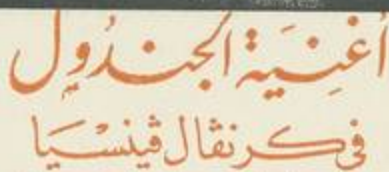 أغنية الجندول
في كرنڤال ڤينسيا